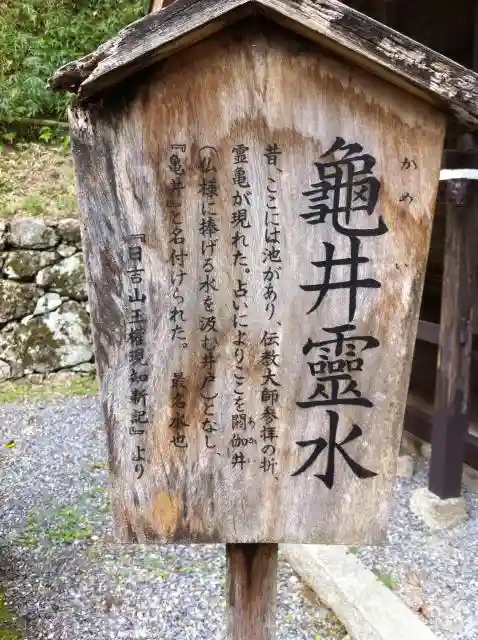 龜井靈水
かめ い
昔、ここには池があり、伝教大師参拝の折、
霊亀が現れた。占いによりここを閼伽井
あかい
(仏様に捧げる水を汲む井戸)となし、
『亀井』と名付けられた。 最名水也
『日吉山王権現知新記』より